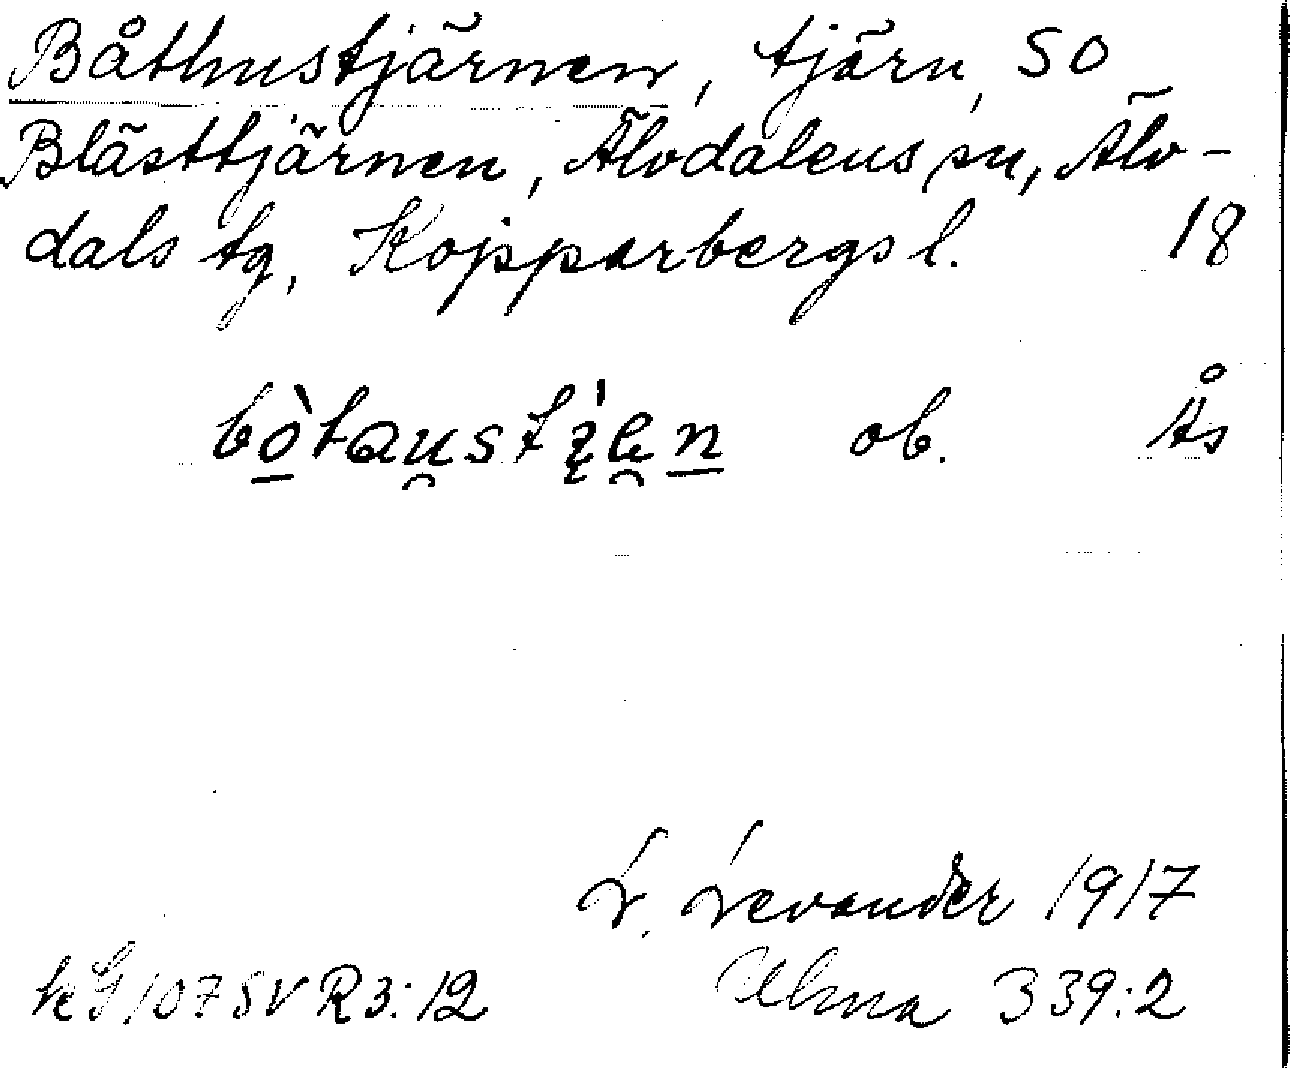 Båthustjärnen, tjärn, SO
Blästtjärnen, Älvdalens sn, Älv-
dals tg, Kopparbergs l. 18
ob. Ås
L. Levander 1917
kG 107 SV R3:12 Ulma 339:2